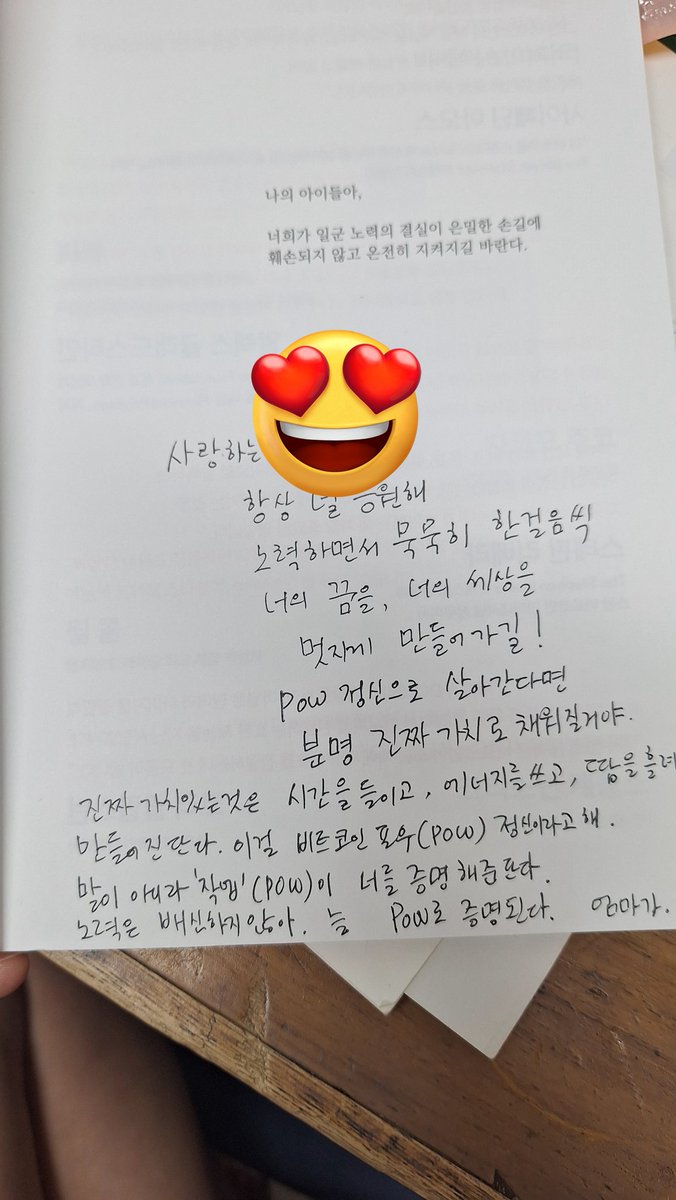 나의 아이들아,
너희가 일군 노력의 결실이 은밀한 손길에
훼손되지 않고 온전히 지켜지길 바란다.
사랑하는
항상 널 응원해
노력하면서 묵묵히 한걸음씩
너의 꿈을, 너의 세상을
멋지게 만들어가길!
POW 정신으로 살아간다면
분명 진짜 가치로 채워질거야.
진짜 가치있는것은 시간을 들이고, 에너지를 쓰고, 땀을 흘려
만들어진단다. 이걸 비트코인 포우(POW) 정신이라고 해.
말이 아니라 '작업'(POW)이 너를 증명해준단다.
노력은 배신하지 않아. 늘 POW로 증명된다. 엄마가.